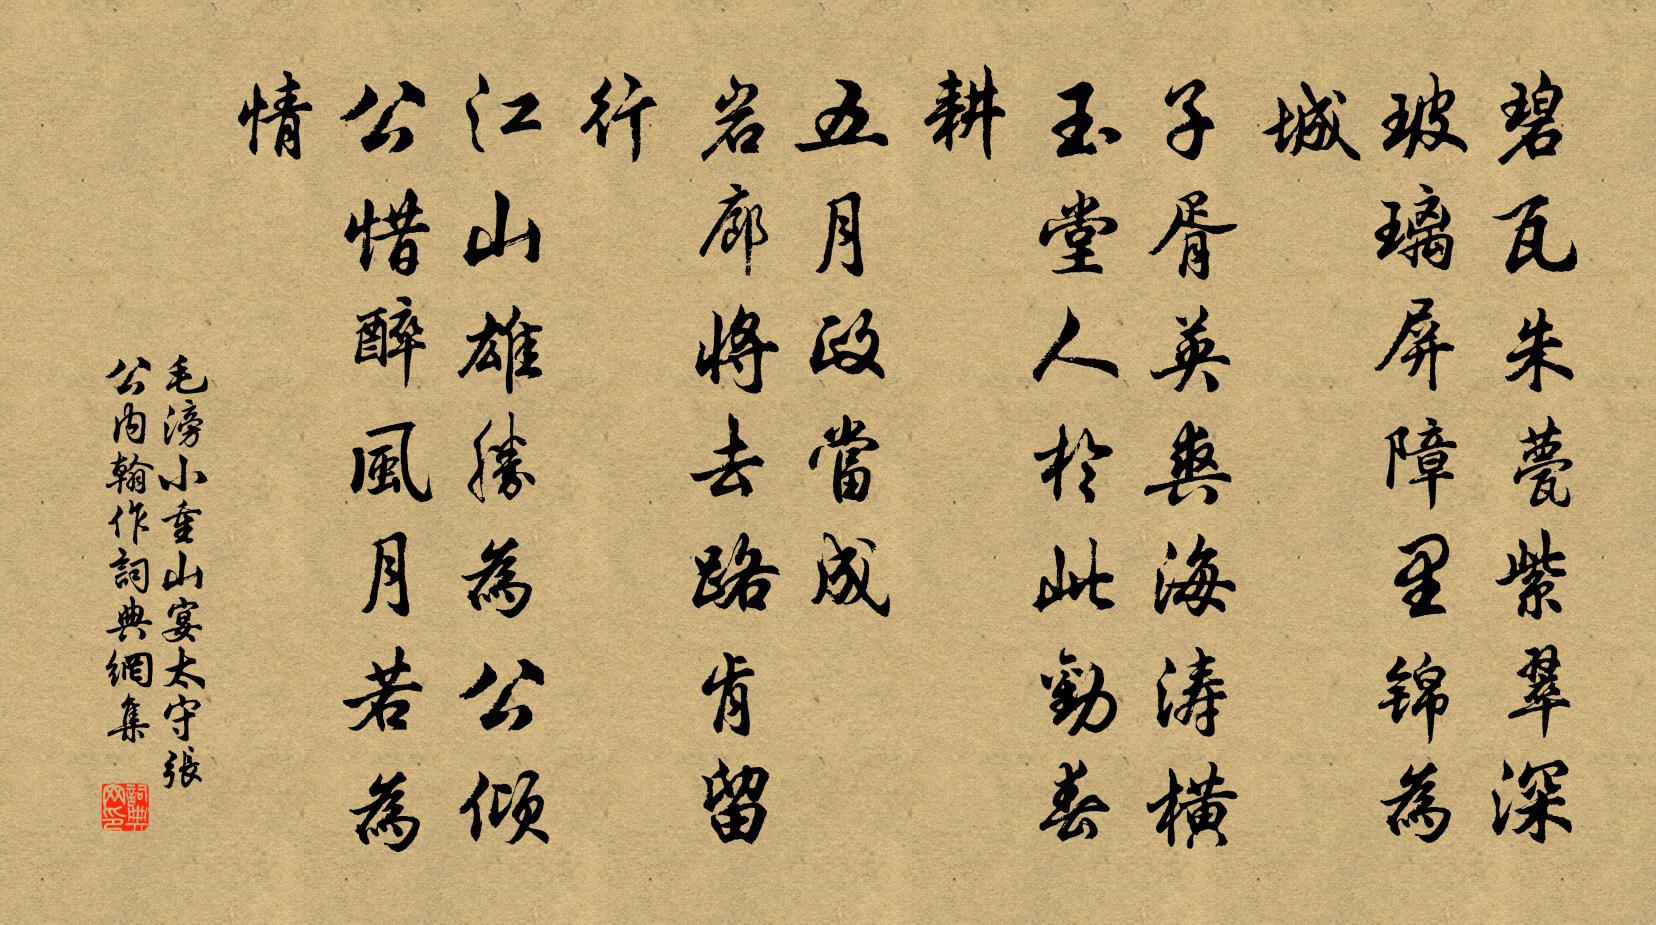 碧瓦朱甍紫翠深
玻璃屏障里锦為
城
子胥英爽海涛橫
玉堂人於此勸春
耕
五月政當成
岩廊將去路肯留
行
江山雄勝為公倾
公惜醉風月若為
情
毛滂小重山宴太守張
公内翰作詞典網集
詞典网印